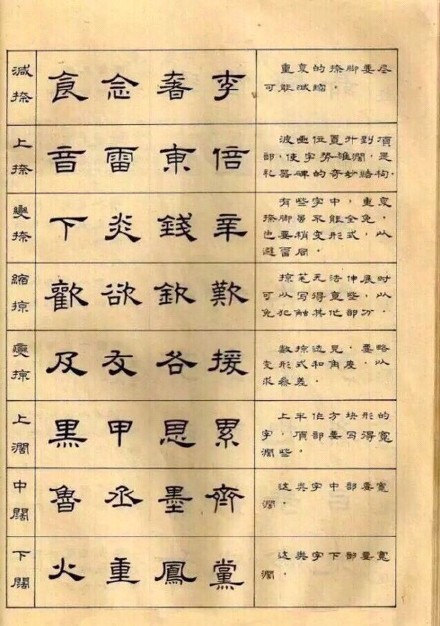 減捺
食念春李
重复的捺脚要尽
可能减缩．
上捺
音雷東倍
波画位置升到顶
部，使字势雄濶，是
礼器碑的奇妙结构．
變捺
下炎錢年
有些字中，重复
捺脚虽不能全免，
也要稍变形式，以
避雷同．
縮掠
歡欲欽歎
掠笔无法伸展时
可以写得直些，以
免犯触其他部分
變掠
及友各援
数掠迭见，要略
变形式和角度，以
求参差．
上濶
黑甲恩累
上半作方块形的
字，顶部要写得宽
濶些．
中闊
魯丞墨齊
这类字中部要宽
濶．
下闊
火重鳳黨
这类字下部要宽
濶．